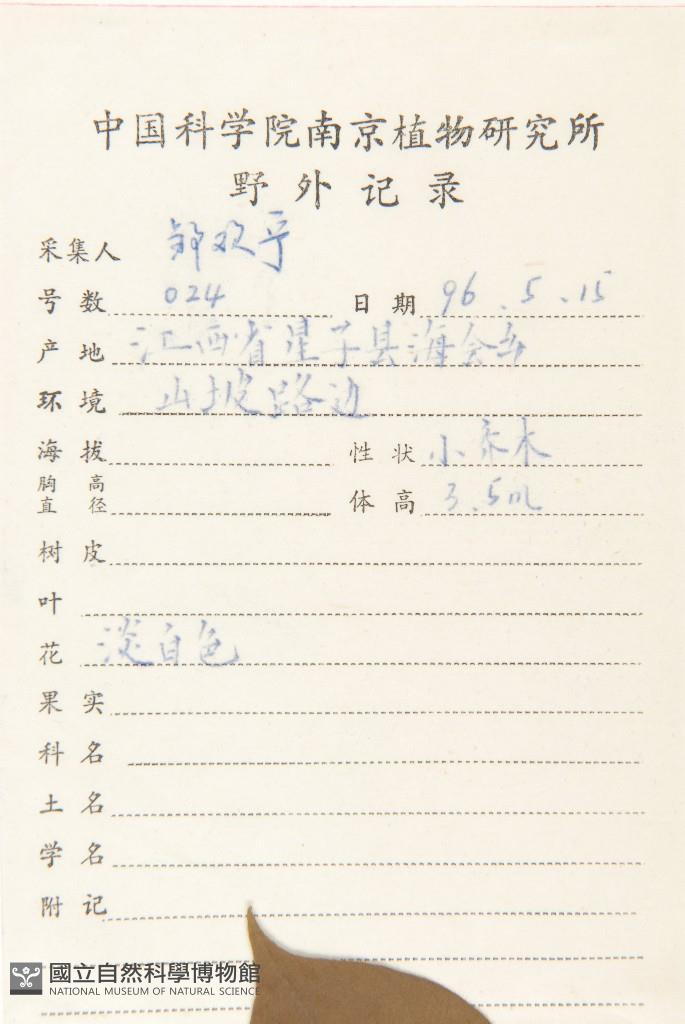 中国科学院南京植物研究所
野外记录
采集人 邹双平
号数 024 日期 96.5.15
产地 江西省星子县海会乡
环境 山坡路边
海拔 性状 小乔木
胸高直径 体高 3.5m
树皮
叶
花 淡白色
果实
科名
土名
学名
附记
國立自然科學博物館
NATIONAL MUSEUM OF NATURAL SCIENCE